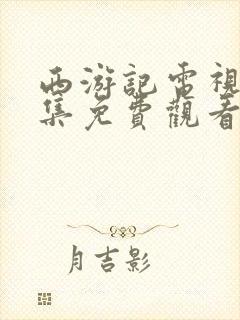 西游記電視
集免費觀看
月吉影